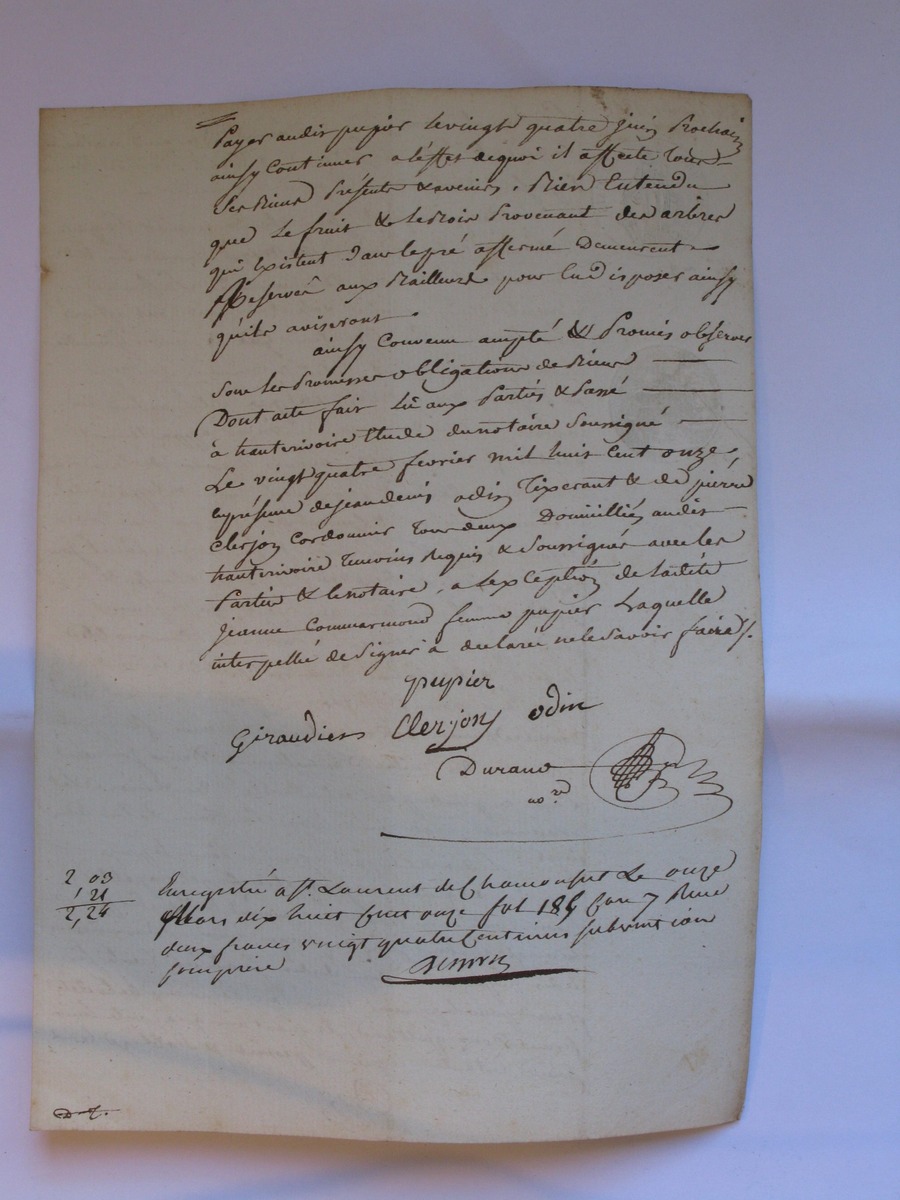 Payer audit pupier le vingt quatre juin Prochain
ainsy Continuer a l'effet de quoi il affecte Tous
Ses Biens Présents & avenirs. Bien Entendu
que le fruit & le Bois Provenant des arbres
qui Existent dans le pré affermé Demeurent
Reservés aux Bailleurs pour En disposer ainsy
qu'ils aviseront.
ainsy Convenu accepté & Promis observer
sous les Promesses obligations de Biens
Dont acte fait Lû aux Parties & Passé
à hauterivoire Etude du notaire Soussigné
Le vingt quatre fevrier mil huit Cent onze,
En présence de jean denis odin Tixerant & de pierre
Clerjon Cordonnier Tous deux Domicilliés audit
hauterivoire Temoins Requis & Soussignés avec les
Parties & le notaire, a l'exception de ladite
jeanne Commarmond femme pupier Laquelle
interpellé de Signer à declaré ne le Savoir faire ./.
pupier
Giraudier Clerjon odin
Durand
no.re
2 03
" 21
2,24
Enregistré a St. Laurent de Chamousset Le onze
Mars dix huit Cent onze fol 185 Case 7 Reçu
deux francs vingt quatre Centimes subvention
Comprise
D 7.